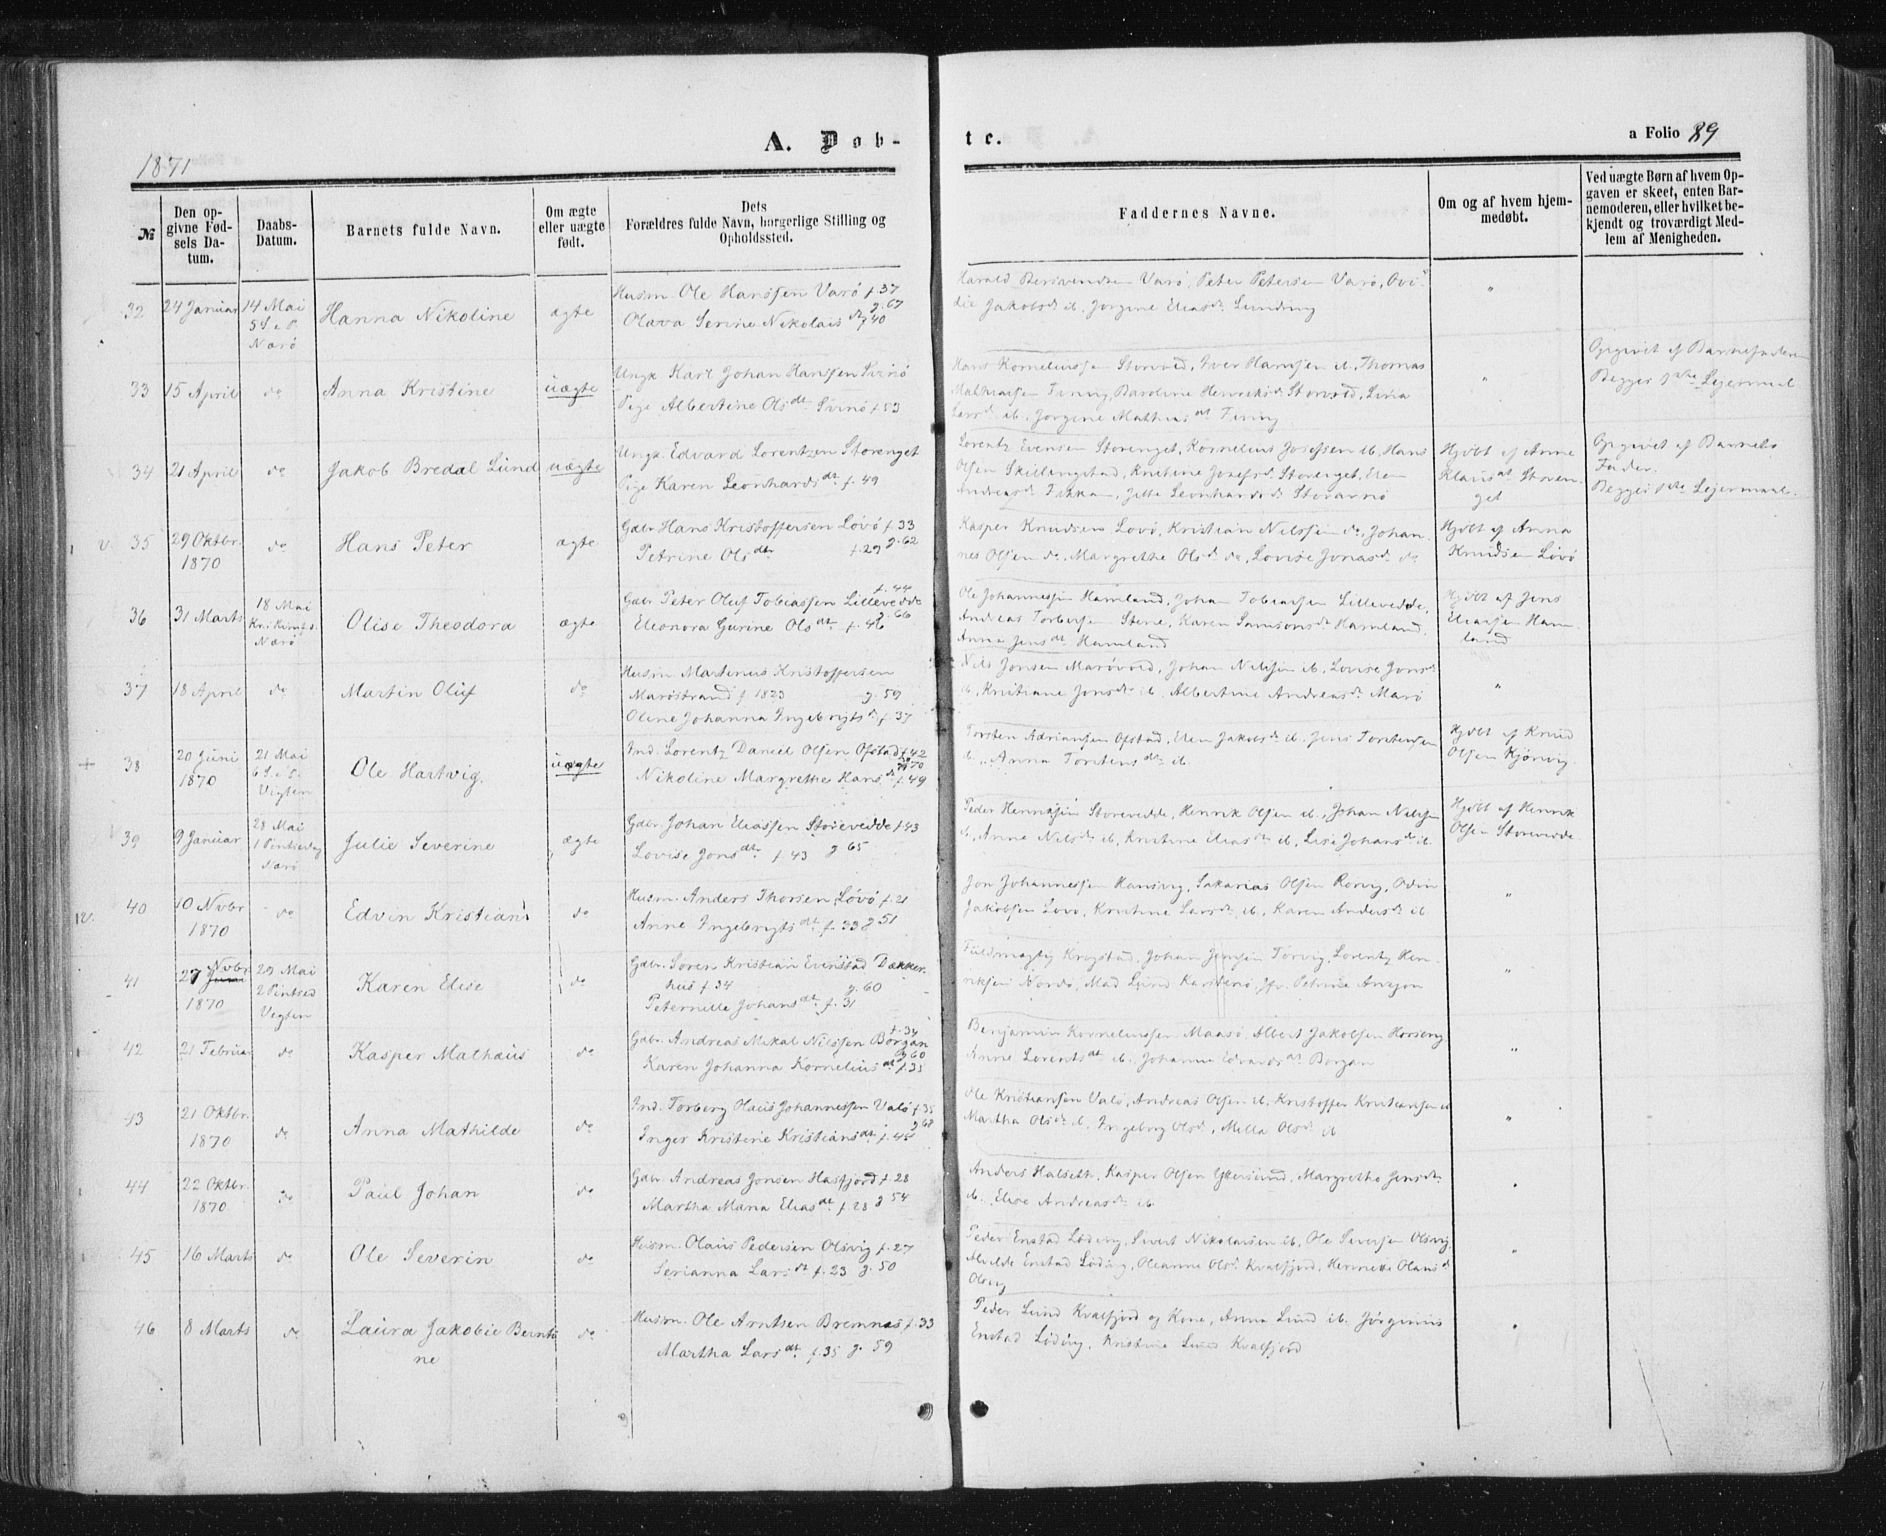 1871
A. Døb-
te.
a Folio 89
№
Den opgivne Fødsels Datum.
Daabs-Datum.
Barnets fulde Navn.
Om ægte eller uægte født.
Dets Forældres fulde Navn, borgerlige Stilling og Opholdssted.
Faddernes Navne.
Om og af hvem hjemmedøbt.
Ved uægte Børn af hvem Opgaven er skeet, enten Barnemoderen, eller hvilket bekjendt og troværdigt Medlem af Menigheden.
32 24 Januar 14 Mai 5 S. e. P. Nærö Hanna Nikoline ægte
Husm. Ole Hanssen Varö f. 37 g. 67
Olava Serine Nikolais dt f 40
Harald Varö, Peter Petersen Varö, Jakobsd. ib. Jörgine Eliasd.
"
33 15 April do Anna Kristine uægte
Ungk. Karl Johan Hanssen Svinö
Pige Albertine Ols dt Svinö f 53
Hans Korneliussen Storved, Iver Hanssen ib, Thomas
Mathiassen Finvig, Baroline Henriksd. Storved, Lina
Larsd. ib. Jörgine Mathias dt Finvig
"
Opgivet af Barnefaderen
Begges 1ste Lejermaal
34 21 April do Jakob Bredal Lund uægte
Ungk. Edvard Lorentzen Storenget
Pige Karen Leonhards dt f. 49
Lorentz Evensen Storenget, Kornelius Josefsen ib, Hans
Olsen Skillingstad, Kristine Josefsd. Storenget, Elen
Andreasd. Leonhardsd.
Hjdbt af Anne
Klaus dt Storen
get
Opgivet af Barnets
Fader.
Begges 1ste Lejermaal.
v. 35 29 Oktbr. 1870 do Hans Peter ægte
Gdbr. Hans Kristoffersen Lövö f. 33 g. 62
Petrine Ols dtr f. 29
Kasper Knudsen Lovö, Kristian Nilssen do, Johan
nes Olsen do, Margrethe Olsd. do, Lovise Jonasd. do
Hjdbt af Anna
Knudsen Lövö
36 31 Marts 18 Mai Kri. Himf. d. Nærö Olise Theodora ægte
Gdbr. Peter Oluf Tobiassen Lillevedde f. 44 g. 66
Eleonora Gurine Ols dt f. 46
Ole Johannessen Hamland, Johan Tobiassen Lillevedde,
Andreas Torbersen Stene, Karen Samsonsd. Hamland,
Anna Jens dt Hamland
Hjdbt af Jens
Eliassen Ham
land
37 18 April do Martin Oluf do
Husm. Martinus Kristoffersen
Maröstrand f. 1823 g. 59
Oline Johanna Ingebrigts d. f. 37
Nils Jonsen Marövold, Johan Nilssen ib. Lovise Jonsd.
ib, Kristiane Jonsd. ib. Albertine Andreasd. Marö
"
+ 38 20 Juni 1870 21 Mai 6 S. e. P. Vigten Ole Hartvig. uægte
Ind. Lorentz Daniel Olsen Ofstad f. 42
Nikoline Margrethe Hans d. f. 49
Torsten Adriansen Ofstad, Elen Jakobsd. ib. Jens Torstensen
ib., Anna Torstens dt ib.
Hjdbt af Knud
Olsen Kjönvig.
v 39 9 Januar 28 Mai 1 Pintsedag Nærö Julie Severine ægte
Gdbr. Johan Eliassen Storevedde f 43
Lovise Jons dtr f 43 g 65
Peder Henriksen Storevedde, Henrik Olsen ib., Johan Nilssen
ib, Anne Nilsd. ib, Kristine Eliasd. ib, Lise Johansd. ib.
Hjdbt af Henrik
Olsen Storevedde
40 10 Nvbr 1870 do Edvin Kristian do
Husm. Anders Thorsen Lövö f. 21
Anne Ingebrigts dt f. 33 g 51
Jon Johannessen Hansvig, Sakarias Olsen Rörvig, Odin
Jakobsen Lovö, Kristine Larsd. ib, Karen Andersd. ib
"
41 27 Nvbr 1870 29 Mai 2 Pintsed Vegten Karen Elise do
Gdbr. Soren Kristian Evenstad Dække-
hus f. 34 g. 60
Peternille Johans dt f. 31
Fuldmægtig Krogstad, Johan Jensen Torvig, Lorentz Hen
riksen Nordö, Mad Lund
"
42 21 Februar do Kasper Mathæus do
Gdbr. Andreas Mikal Nilssen Borgan f. 34 g 60
Karen Johanna Kornelius dt f. 35
Benjamin Korneliussen Maasö, Albert Jakobsen Horsvig
Anne Lorents dt ib. Johanna Edvards dt Borgan
"
43 21 Oktbr. 1870 do Anna Mathilde do
Ind. Torberg Olaus Johannessen Valö f. 35 g 68
Inger Kristine Kristians dt f. 45
Ole Kristiansen Valö, Andreas Olsen ib. Kristoffer Kristiansen ib
Martha Olsd. ib, Ingeborg Olsd., Milla Olsd. ib
"
44 22 Oktbr. 1870 do Paul Johan do
Gdbr. Andreas Jonsen Hasfjord f 28
Martha Maria Elias dt f. 28 g 54
Anders Halseth, Kasper Olsen Yttersund, Margrethe Jensd.
ib. Elise Andreasd. ib.
45 16 Marts do Ole Severin do
Husm. Olaus Pedersen Olsvig f. 27
Serianna Lars dt f. 23 g. 50
Peder Enstad Lödvig, Sivert Nikolaisen ib, Ole Seversen Olsvig
Alvilde Enstad Lödvig, Oleanne Olsd. Kvalfjord, Henriette Olausd.
Olsvig
"
46 8 Marts do Laura Jakobie Bernti
ne do
Husm. Ole Arntsen Bremnes f. 33
Martha Lars dt. f. 35 g. 59
Peder Lund Kvalfjord og Kone, Anna Lund ib. Jörginius
Enstad Lödvig, Kristine Lund Kvalfjord